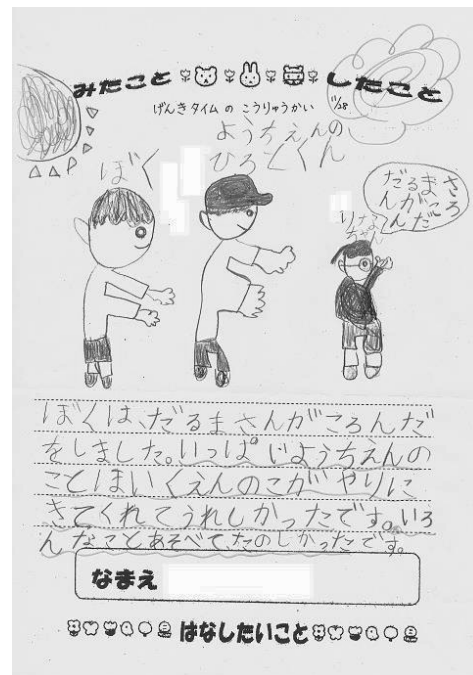 みたこと したこと
げんきタイム の こうりゅうかい 11/28
ぼく
ようちえんの
ひろとくん
りな
ちゃん
だるまさ
んがころ
んだ
ぼくは、だるまさんがころんだ
をしました。いっぱいようちえんの
ことほいくえんのこがやりに
きてくれてうれしかったです。いろ
んなことあそべて、たのしかったです。
なまえ
はなしたいこと